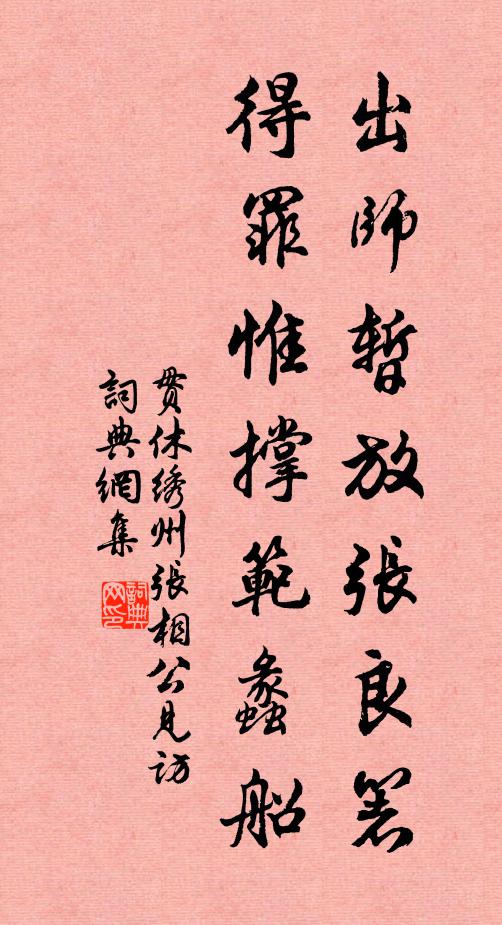 出師暫放張良箸
得罪惟撐範蠡船
贯休绣州張相公見访
詞典網集
詞典网印